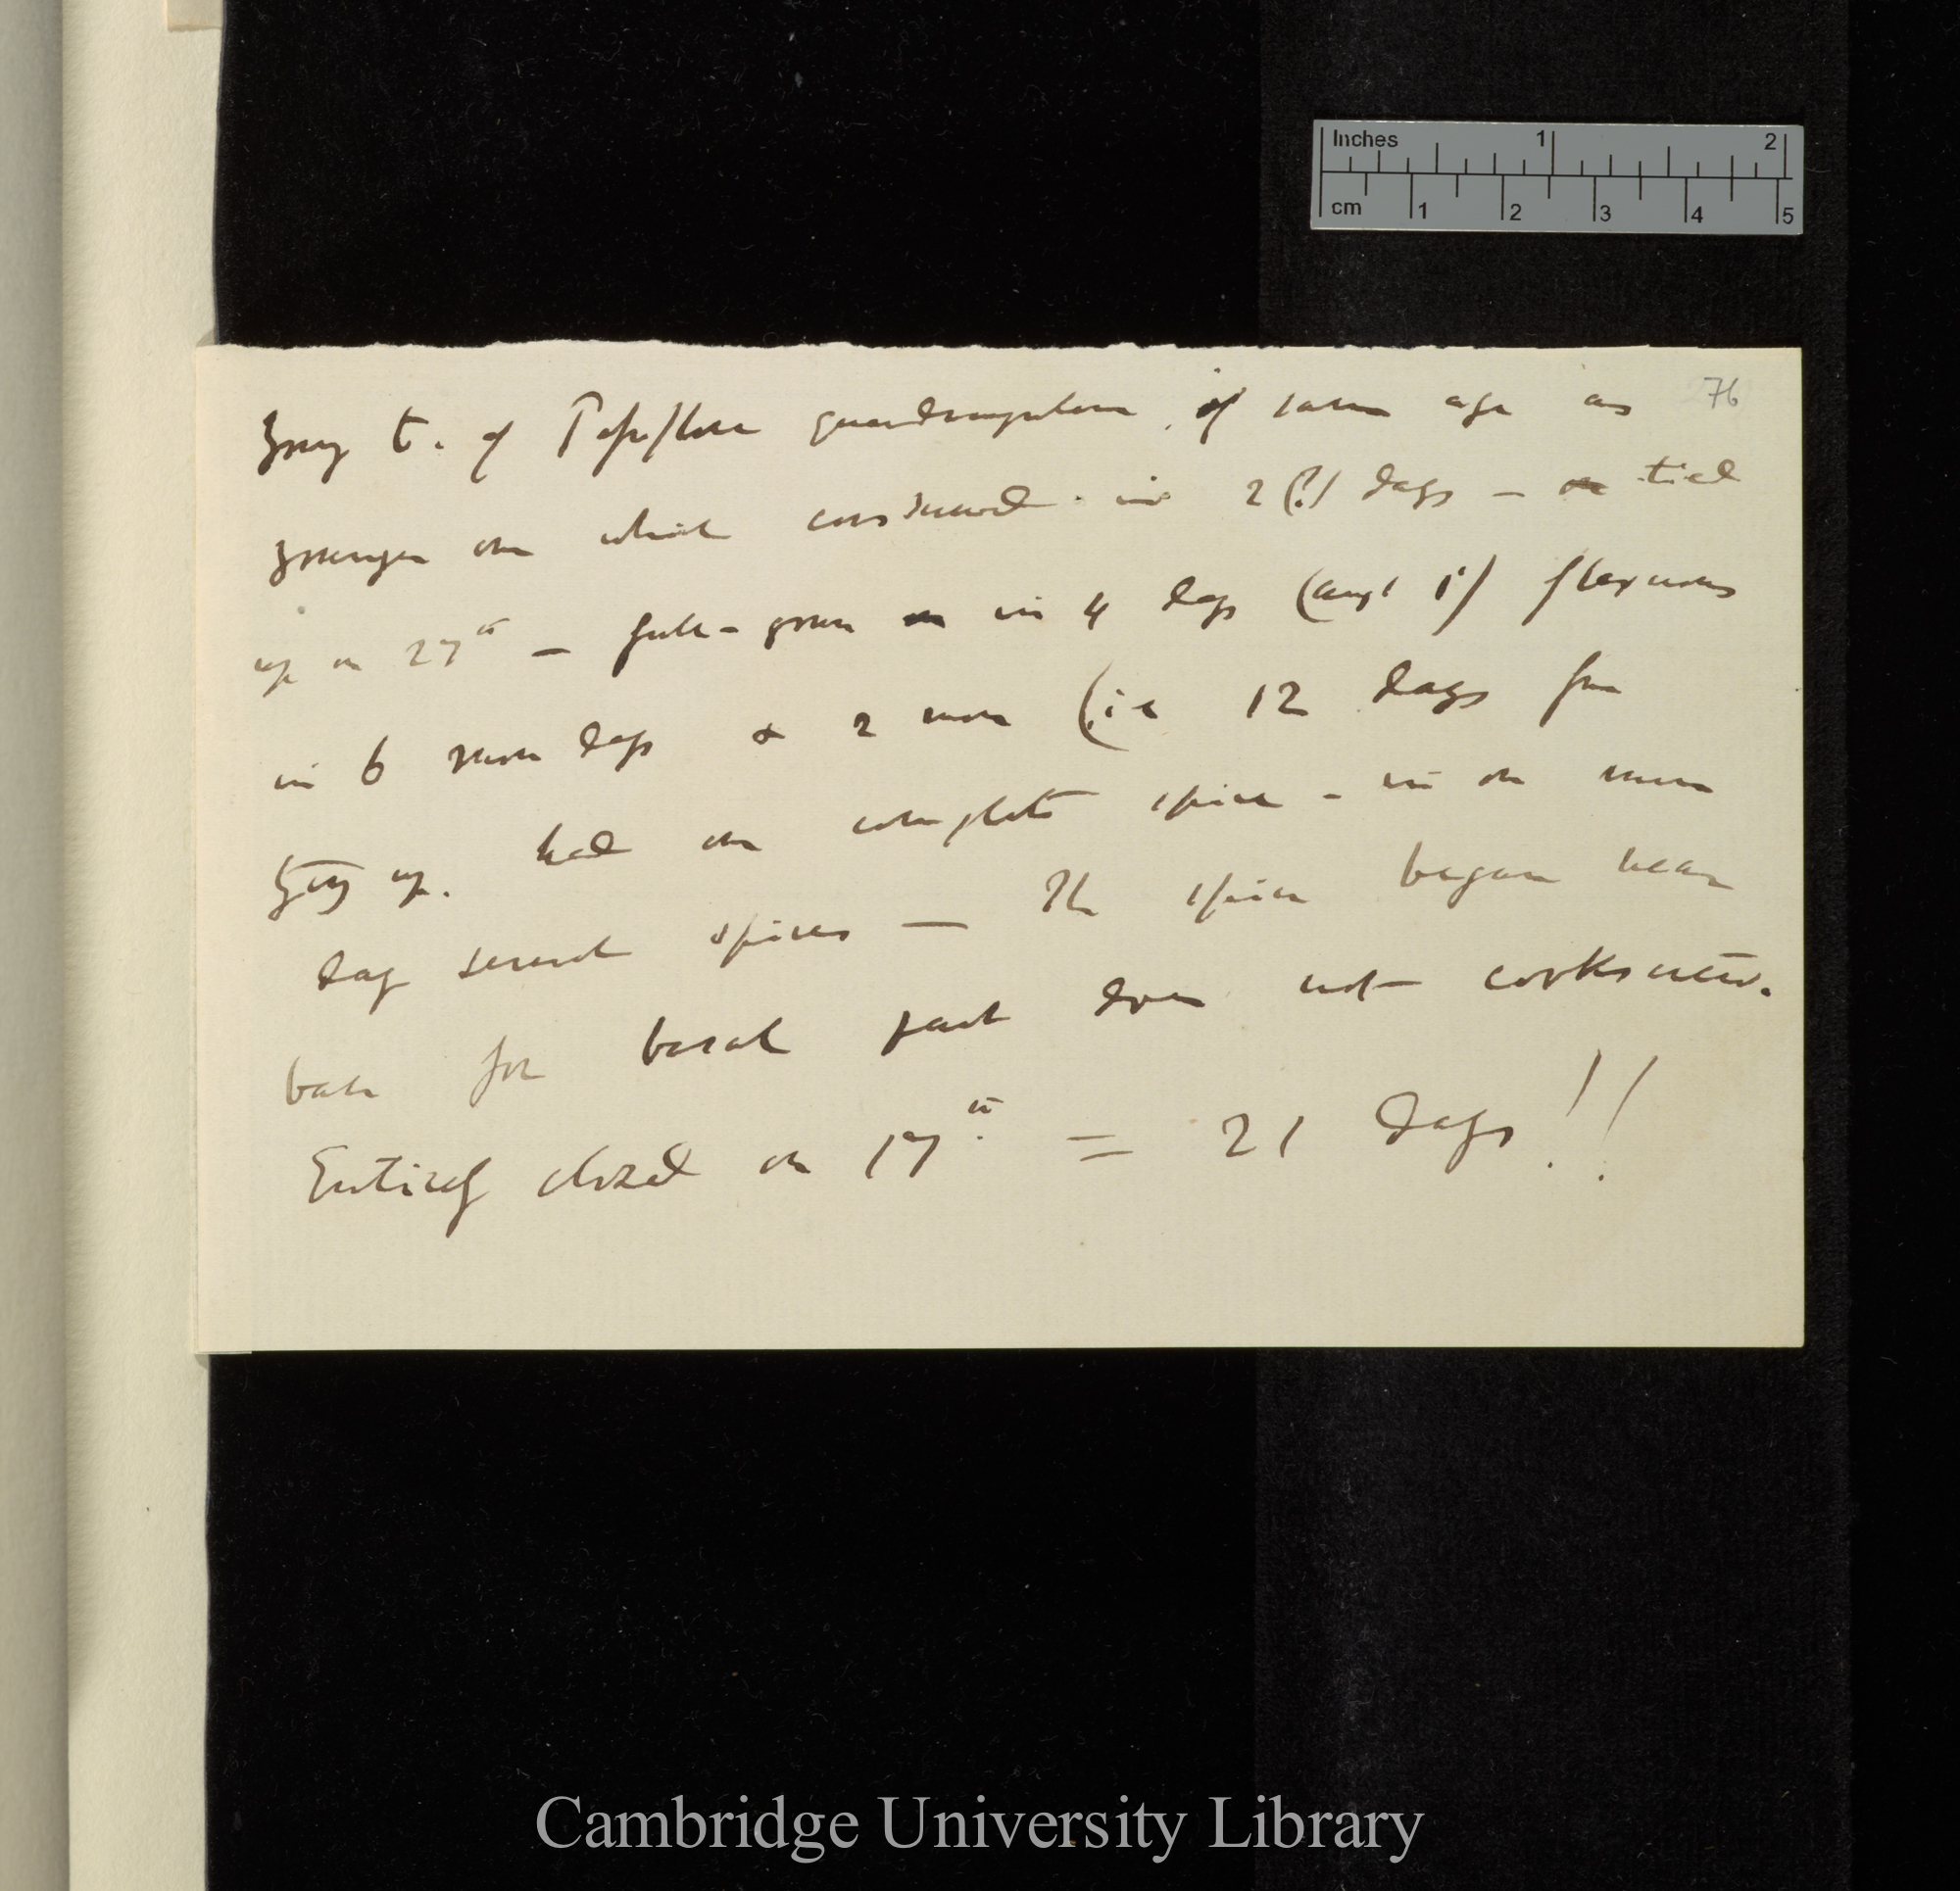 Inches 1 2
cm 1 2 3 4 5
76
Young t. of Passiflora quadrangularis of same age as
younger one which contracted in 2(?) days — tied
up on 27th — full-grown in 4 days (Augt 1st) flexuous
in 6 more days & 2 more (ie 12 days from
tying up. had one complete spire - in one more
day several spires — The spire began near
base for basal part does not corkscrew.
Entirely closed on 17th = 21 days!!
Cambridge University Library